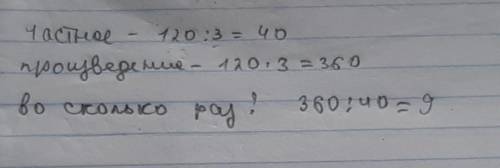 частное - 120:3 = 40
произведение - 120:3 = 360
во сколько раз! 360:40 = 9